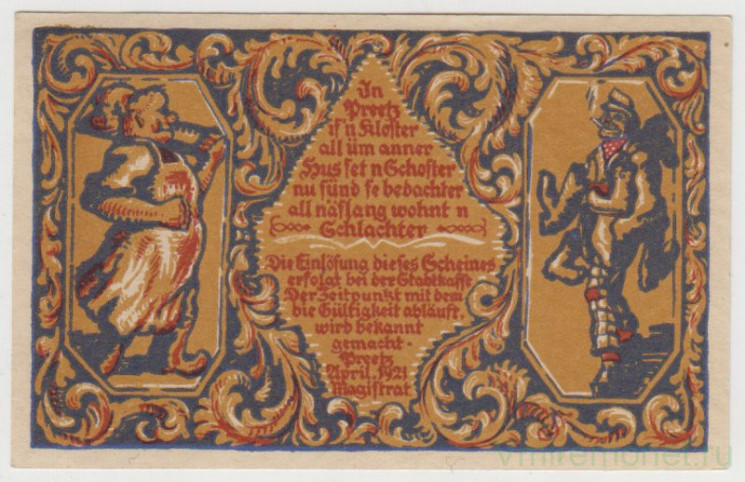 In
Preetz
is'n Kloster
all üm anner
Hus set n Schoster
nu sünd se bedachter
all näslang wohnt n
Schlachter
Die Einlösung dieses Scheines
erfolgt bei der Stadtkasse
Der Zeitpunkt mit dem
die Gültigkeit abläuft,
wird bekannt
gemacht.
Preetz
April. 1921
Magistrat
vmiremonet.ru